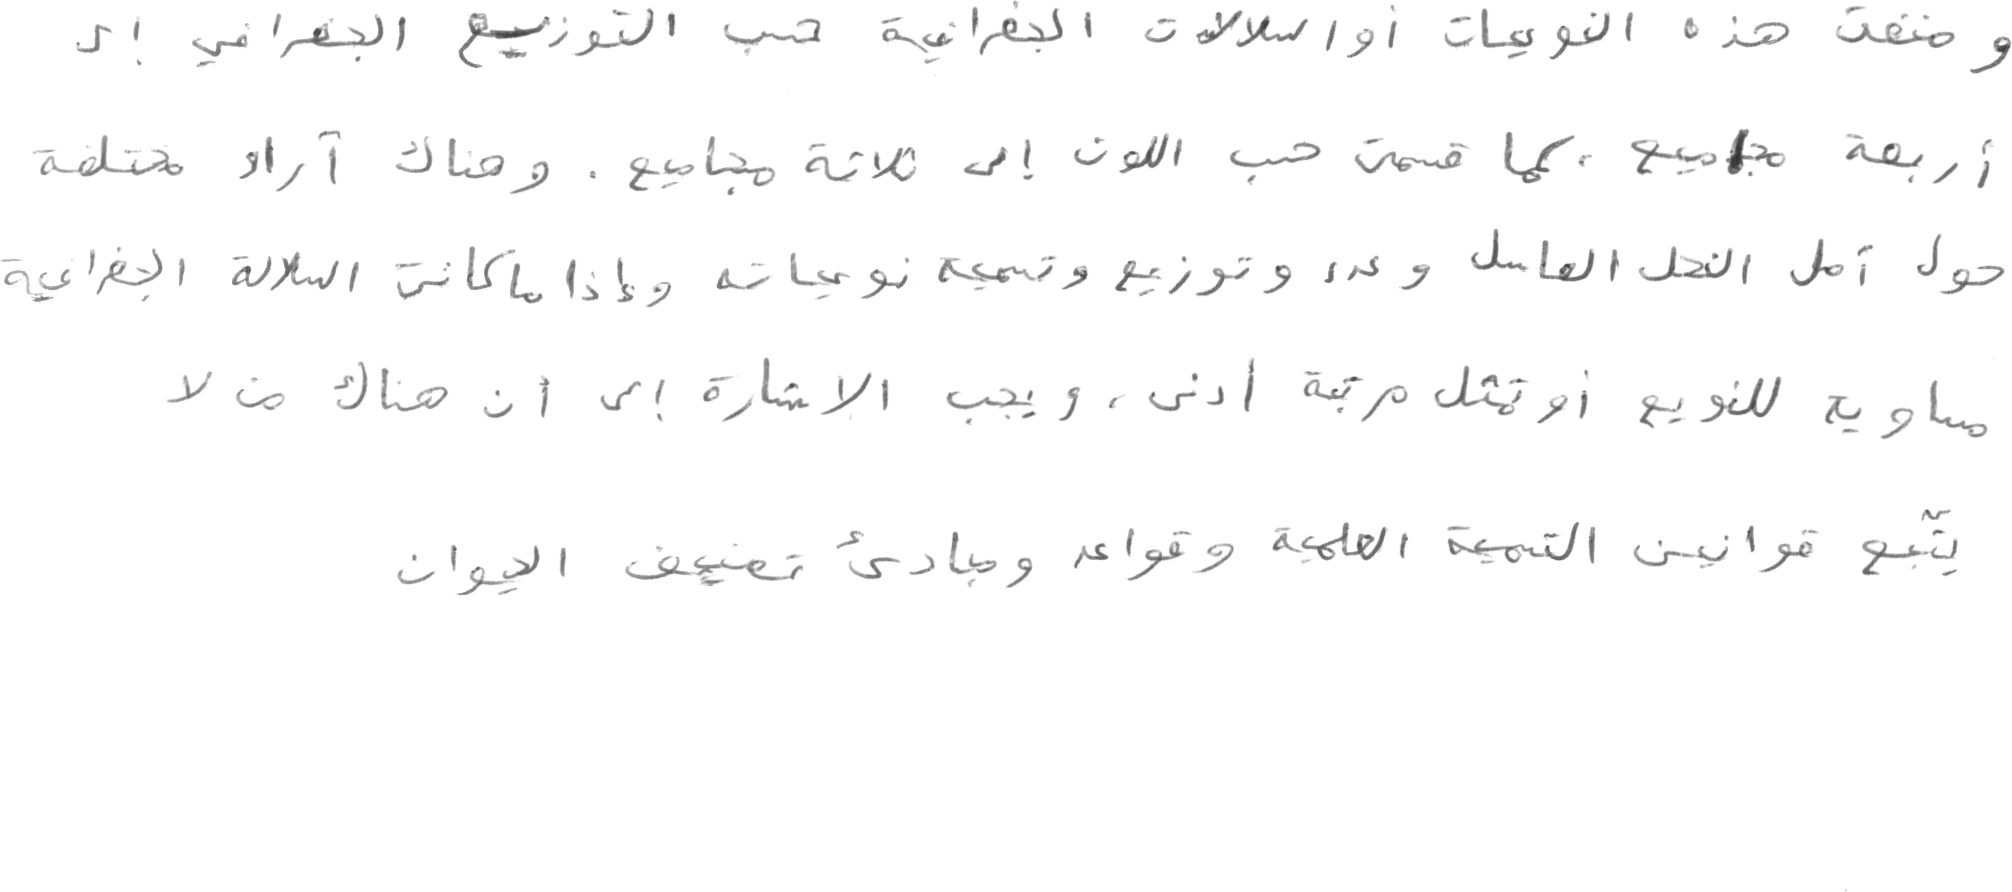 وصنفت هذه النويعات أو السلالات الجغرافية حسب التوزيع الجغرافي إلى
أربعة مجاميع ، كما قسمت حسب اللون إلى ثلاثة مجاميع . وهناك آراء مختلفة
حول أصل النحل العاسل وعدد وتوزيع وتسمية نويعاته وإذا ماكانت السلالة الجغرافية
مساوية للنويع أو تمثل مرتبة أدنى ، ويجب الإشارة إلى أن هناك من لا
يتّبع قوانين التسمية العلمية وقواعد ومبادئ تصنيف الحيوان